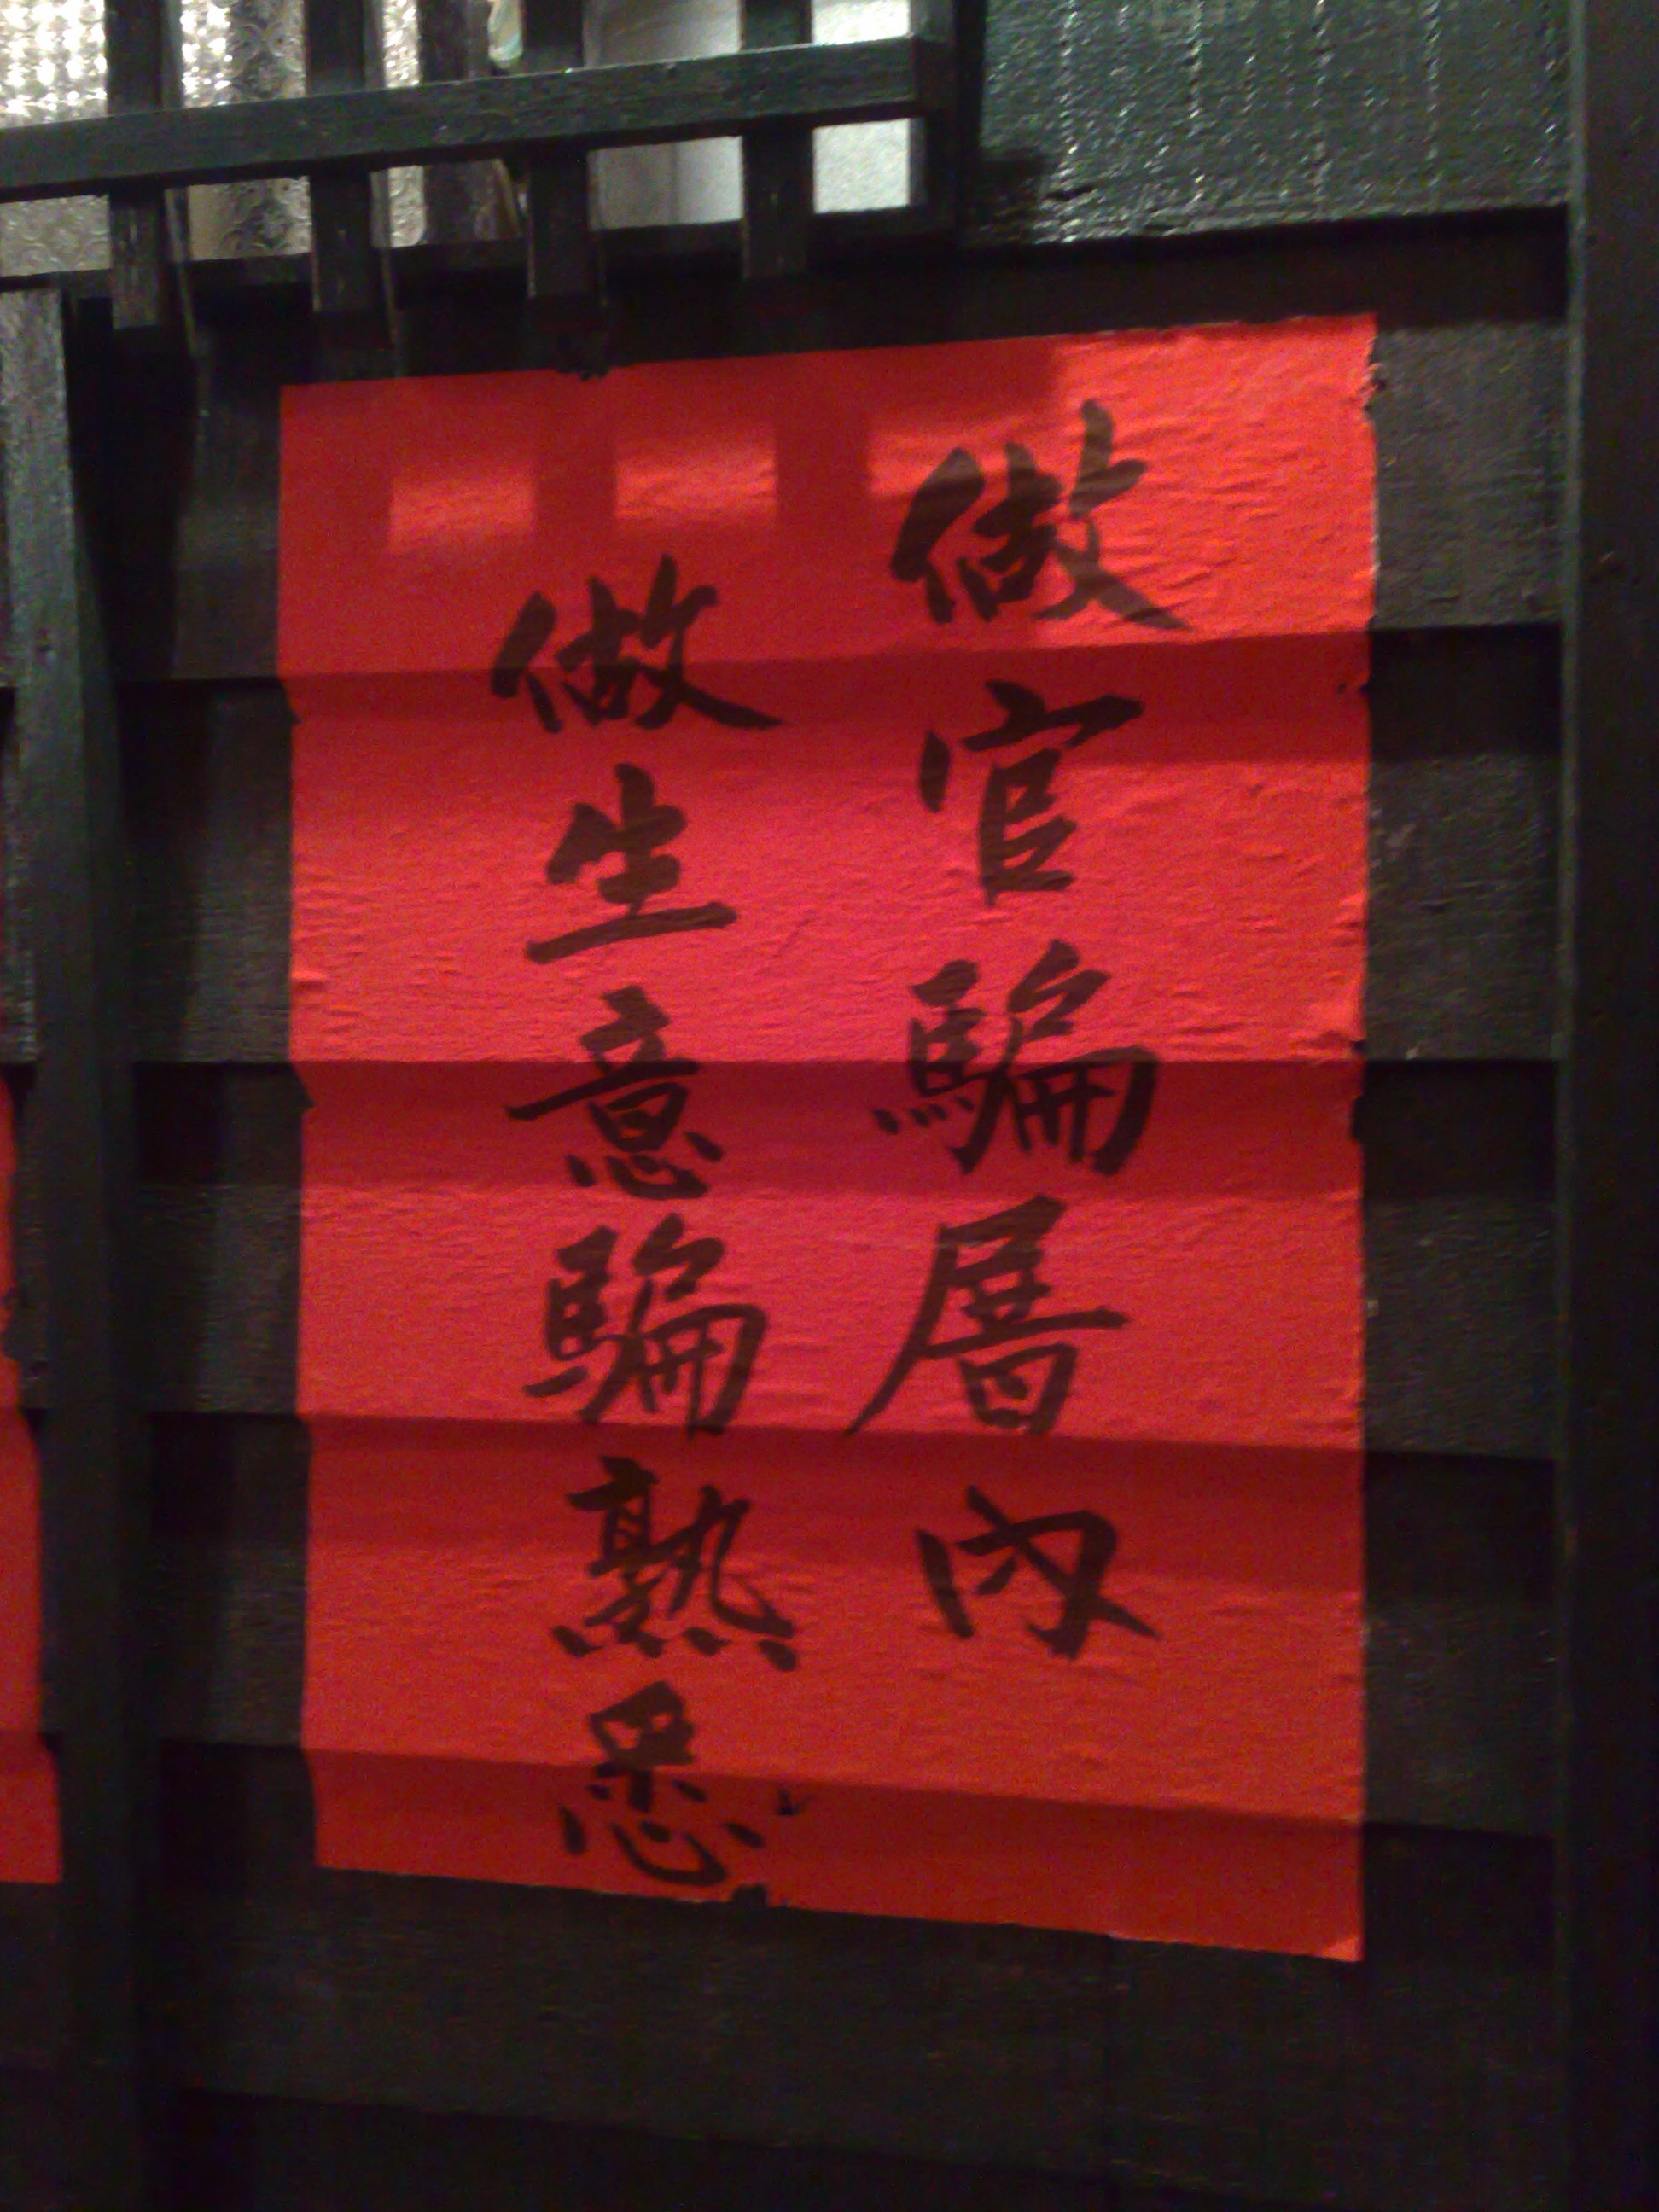 做官騙厝內
做生意騙熟悉